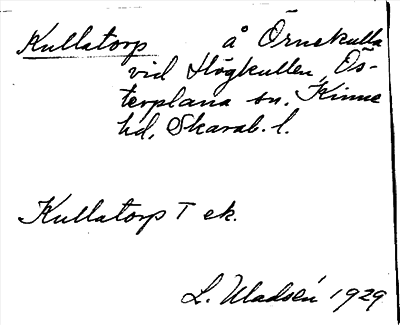 Kullatorp å Örnekulla
vid Högkullen, Ös-
terplana sn, Kinne
hd, Skarab. l.
Kullatorp T ek.
L. Madsén 1929